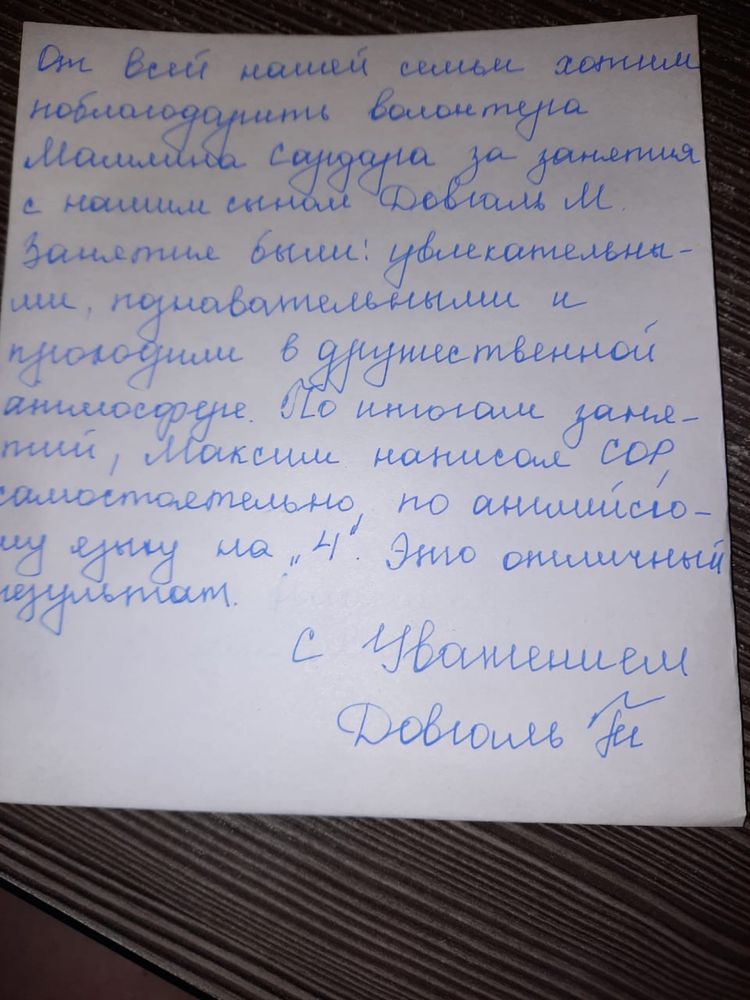 От всей нашей семьи хотим
поблагодарить волонтера
Сардара за занятия
с нашим сыном Довгаль М.
Занятия были: увлекательны-
ми, познавательными и
проходили в дружественной
атмосфере. По итогам заня-
тий, Максим написал СОР,
самостоятельно, по английско-
му языку на „4". Это отличный
результат.
С Уважением
Довгаль